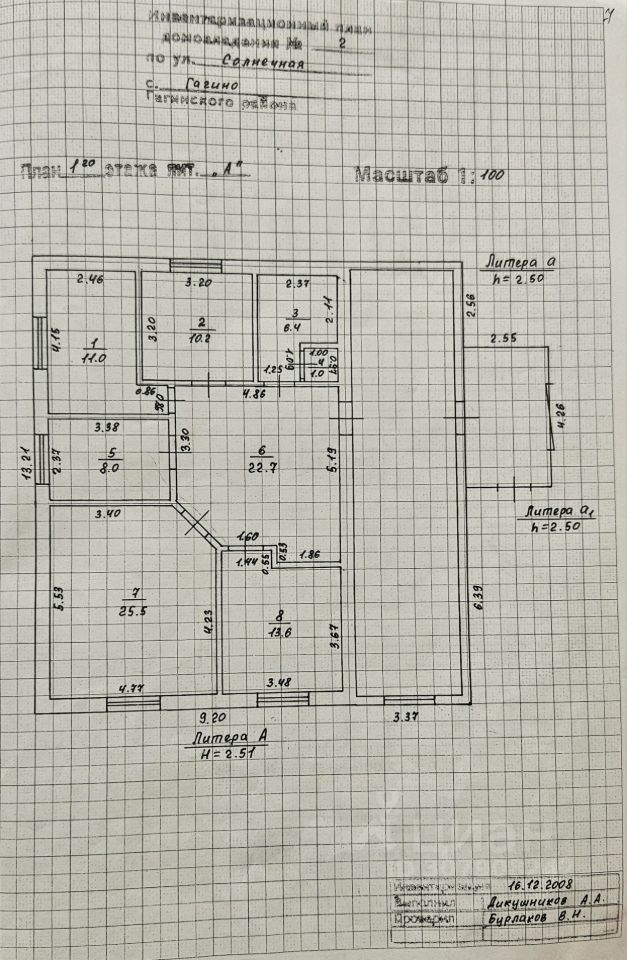 7
Инвентаризационный план
домовладения № 2
по ул. Солнечная
с. Гагино
Гагинского района
План 1го этажа лит. „А"
Масштаб 1:100
Литера а
h=2.50
2.46
3.20
2.37
2.56
2.11
2.55
4.15
1
11.0
3.20
2
10.2
3
6.4
1.09
1.00
4
1.0
0.97
1.25
0.86
4.86
4.26
3.38
3.30
6
22.7
5.19
13.21
2.37
5
8.0
3.40
Литера а1
h=2.50
1.60
0.53
1.86
1.44
0.55
5.53
7
25.5
4.23
8
13.6
3.67
6.39
4.77
3.48
9.20
3.37
Литера А
H=2.51
Инвентаризация 16.12.2008
Выполнил Дикушников А.А.
Проверил Бурлаков В.Н.